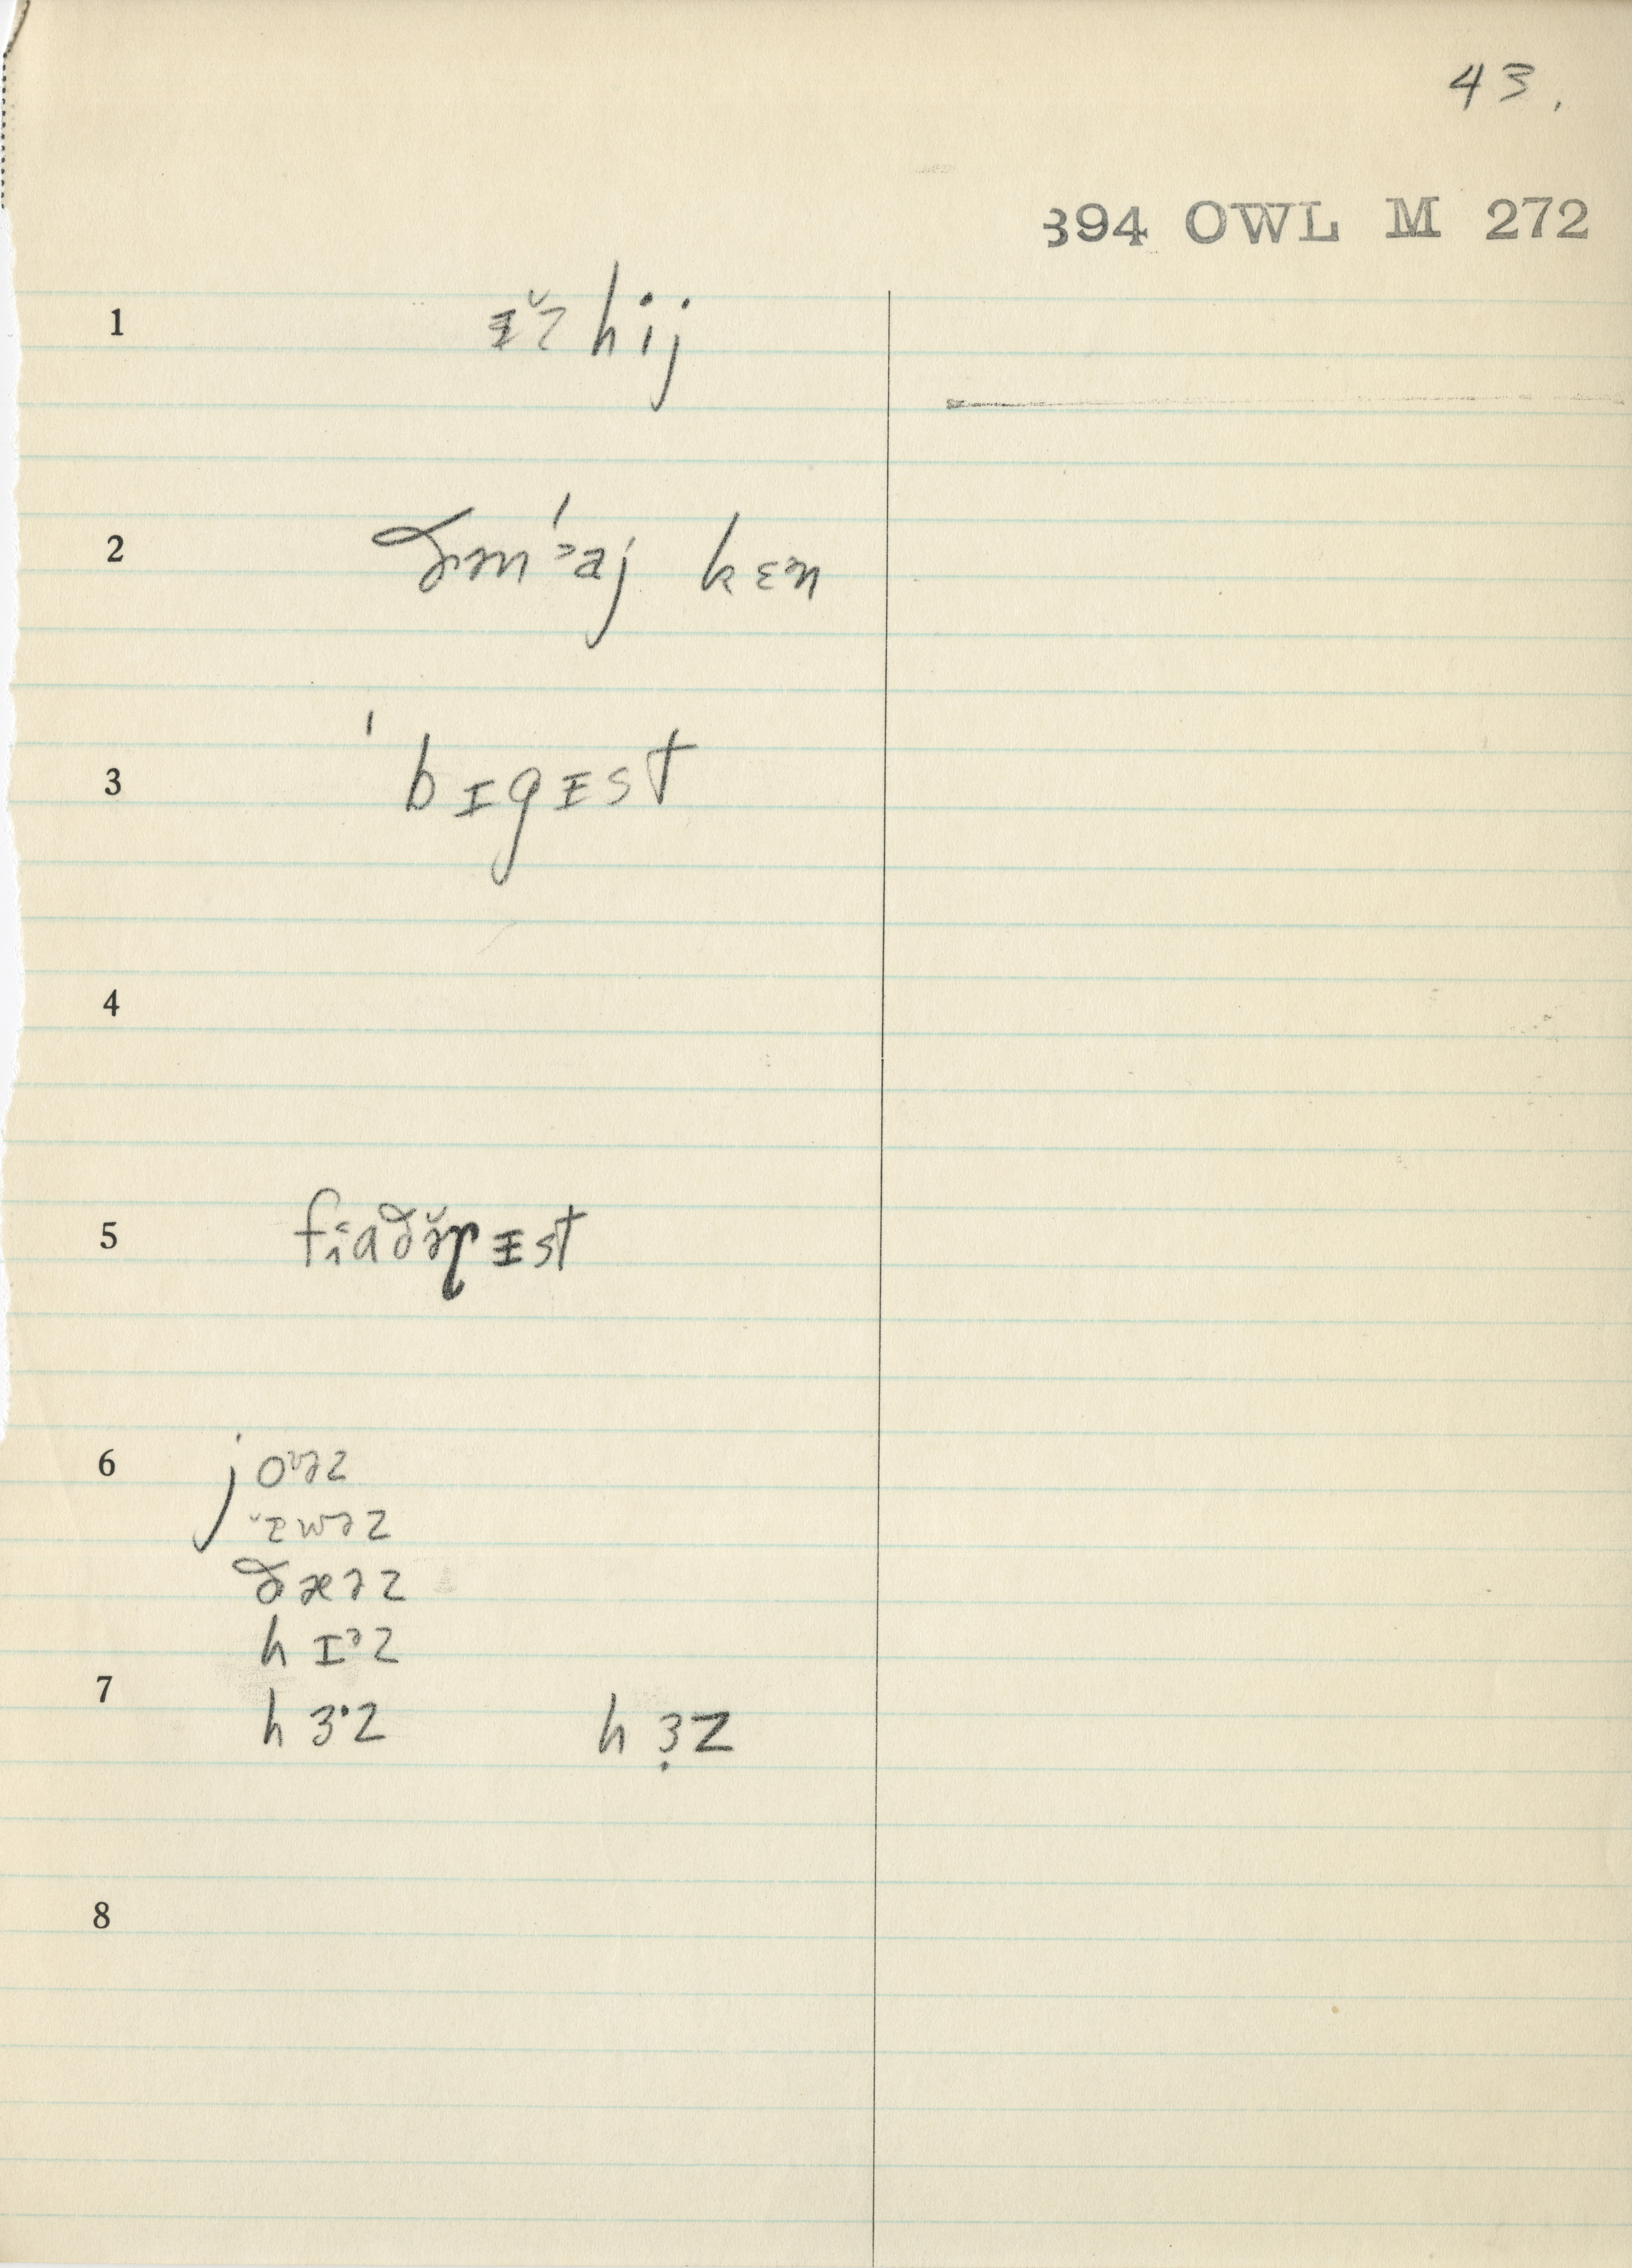 43.
394 OWL M 272
1 ᵻ̆z hij
2 ðəm ˈɔaj kɛn
3 ˈbɪgᵻst
4
5 fiɑðə̆ɽᵻst
6 joᶷəz
ᵻ̆wəz
ðæəz
hɪᵊz
7 hɜ·z hɜ̣z
8